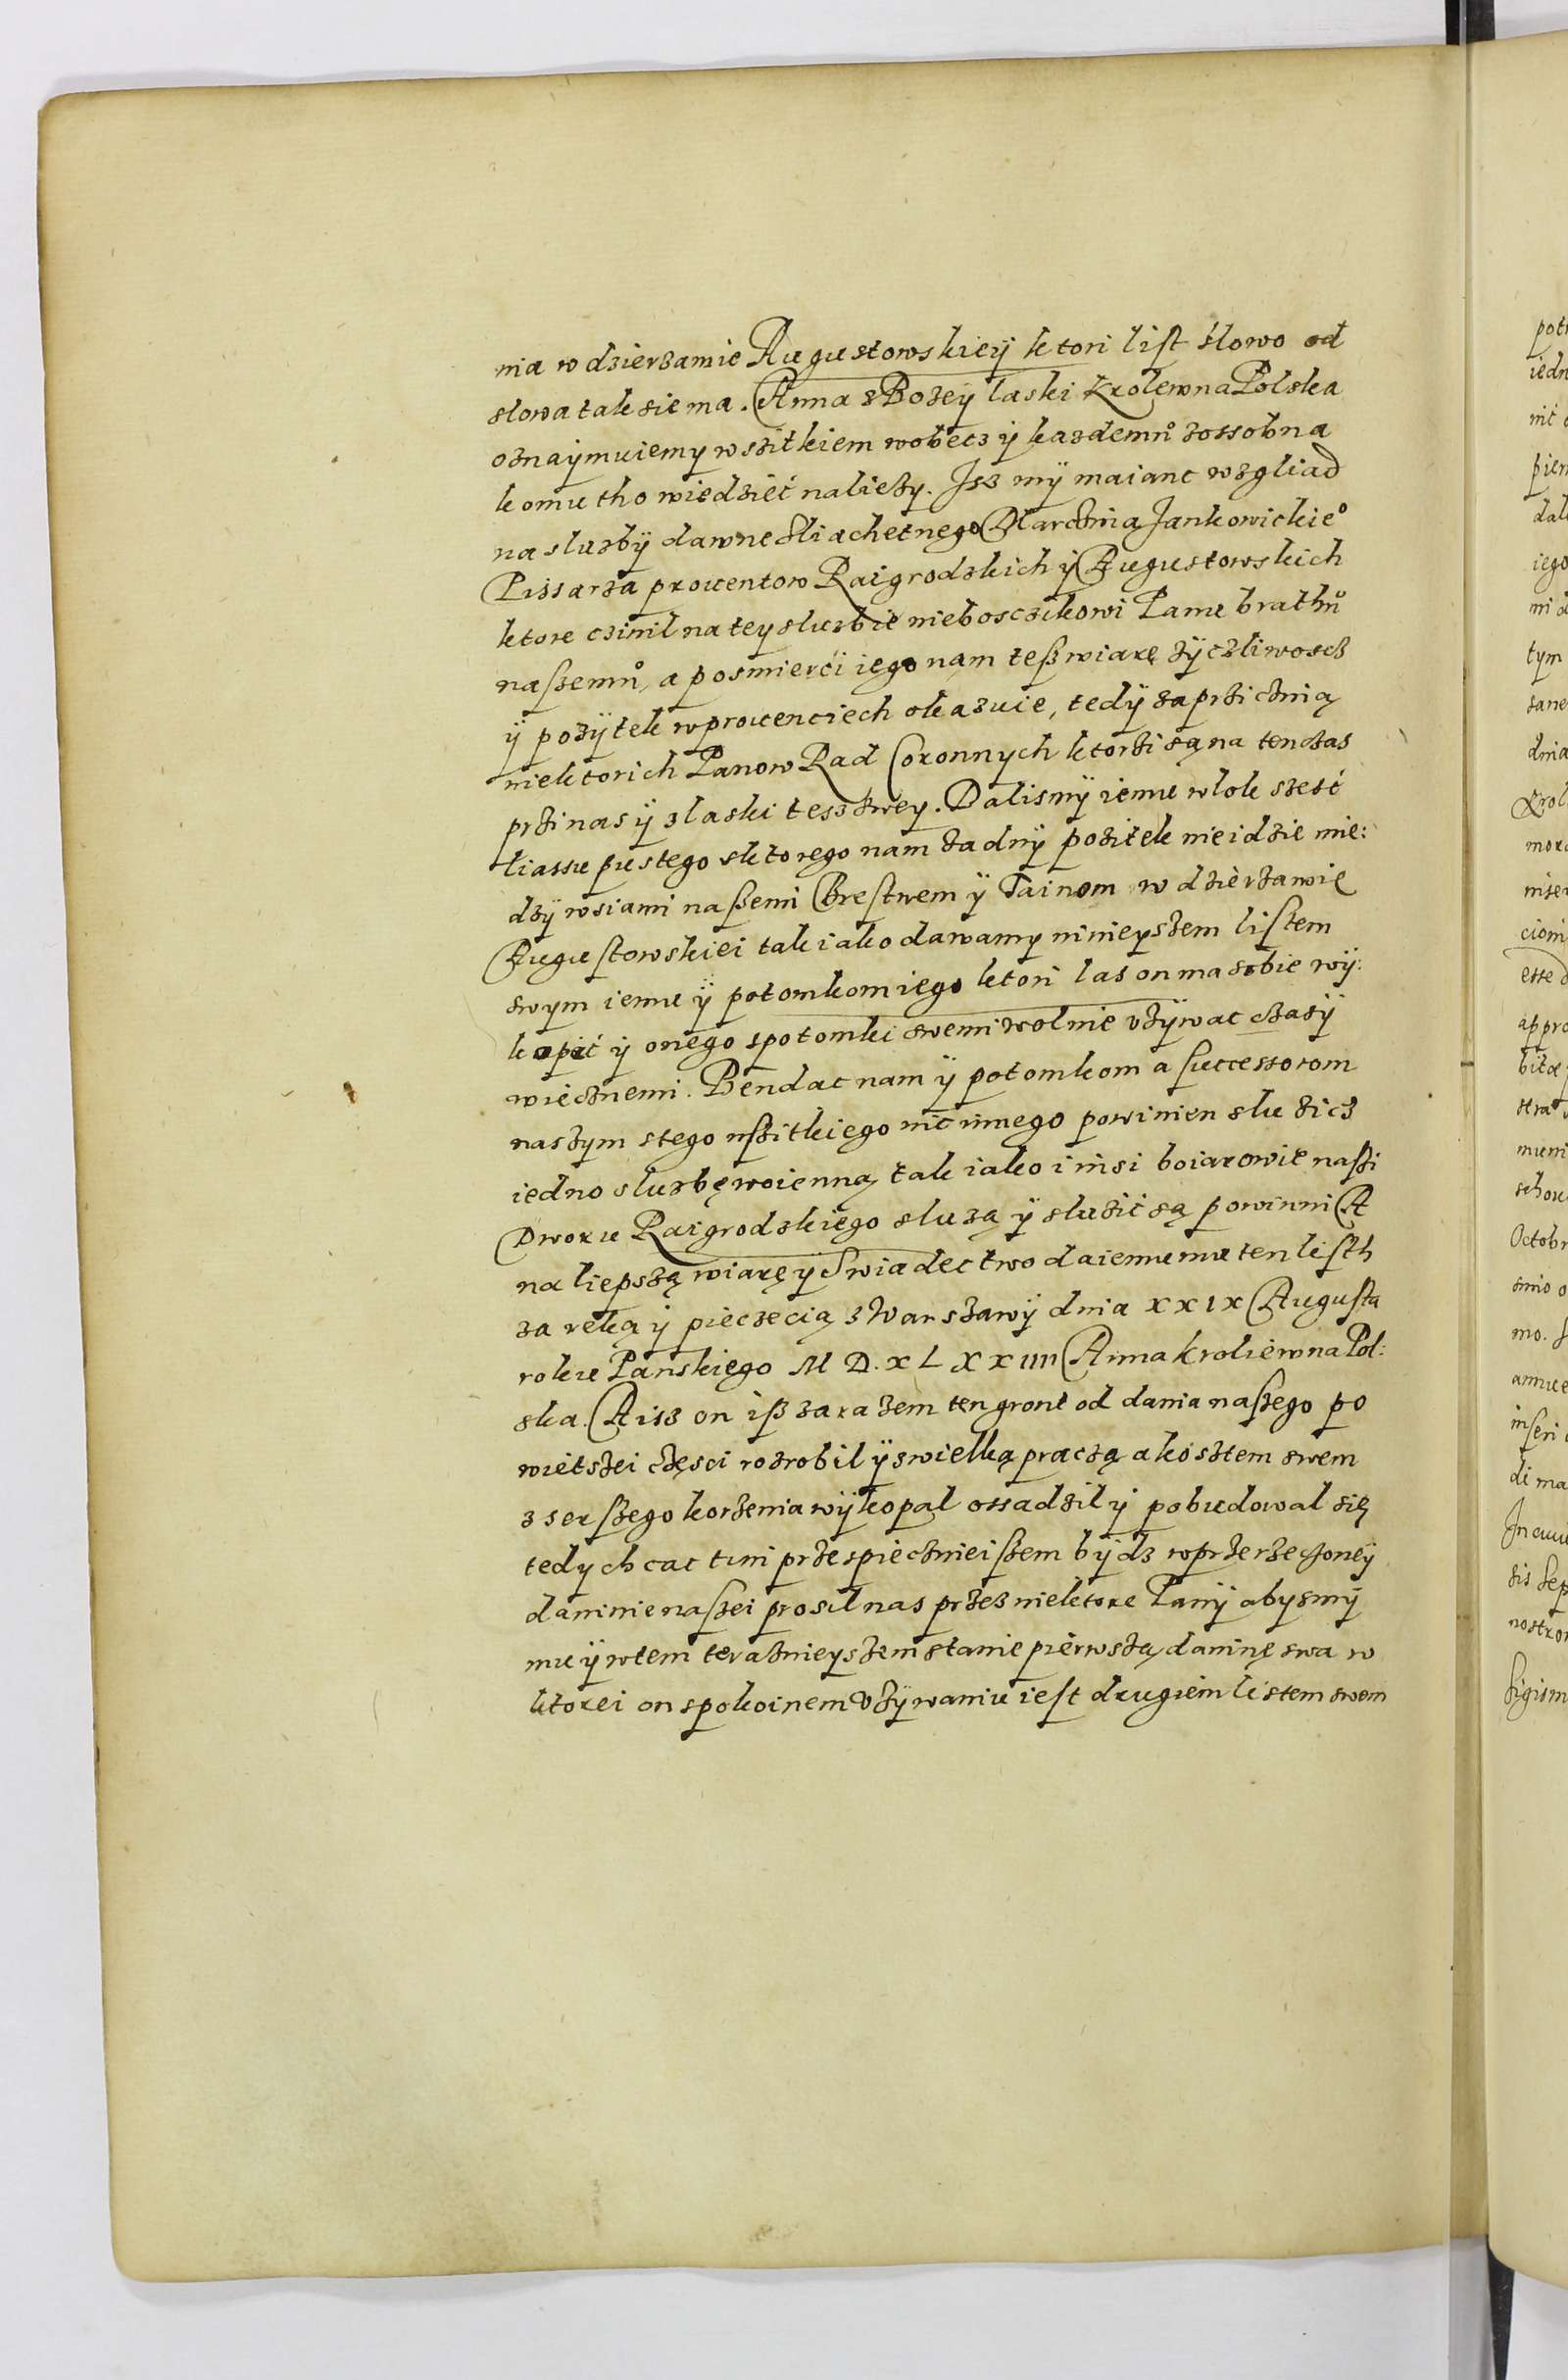 nia w dzierzawie Augustowskieÿ ktori list slowo od
slowa tak sie ma. Anna z Bozeÿ laski Krolewna Polska
oznaÿmuiemy wszitkiem wobecz ÿ kazdemů zossobna
komu tho wiedzieć naliezy. Isz mÿ maianc wzgliad
na sluzbÿ dawne Sliachetnego Marcina Jankowickieo
Pissarza prouentow Raigrodzkich ÿ Augustowskich
ktore czinil na tey sluzbie niebosczikowi Panu brathů
naszemů, a po smierći iego nąm tesz wiarę zÿczliwoscz
ÿ pozÿtek w prouenciech okazuie, tedÿ za prziczinią
niektorich Panow Rad Coronnych ktorzi są na ten czas
przi nas ÿ z laski tesz swey. Dalismÿ iemu wlok szesć
liassu pustego sktorego nam zadnÿ pozitek nie idzie mie:
dzÿ wsiami naszemi Brestwem ÿ Tainom w dzierzawię
Augustowskiei tak iako dawamy ninieyszem listem
swym iemu ÿ potomkom iego ktori las on ma sobie wÿ:
kopać ÿ onego spotomki swemi wolnie vzÿwac czasÿ
wiecznemi. Bendac nam ÿ potomkom a successorom
naszym stego uszitkiego nic innego powinien sluzicz
iedno sluzbę woienną tak iako i insi boiarowie naszi
Dworu Raigrodzkiego sluzą ÿ sluzić są powinni A
na liepszą wiarę ÿ Swiadectwo daiemu mu ten listh
za reką ÿ pieczecią z Warszawÿ dnia XXIX Augusta
roku Panskiego M D. X L X X IIII Anna kroliewna Pol:
ska. A isz on isz zarazem ten gront od dania naszego po
wietszei częsci rozrobil ÿ s wielką praczą a kosztem swem
z serszego korzenia wÿkopal ossadzil ÿ pobudowal się
tedy chcac tim przespieczniei szem bÿdz w przerzeczoneÿ
daninie naszei prosil nas przez niektore Panÿ abysmÿ
mu ÿ wtem teraznieyszem stanie pierwszą daninę swa w
ktorei on spokoinem vzÿwaniu iest drugiem listem swem